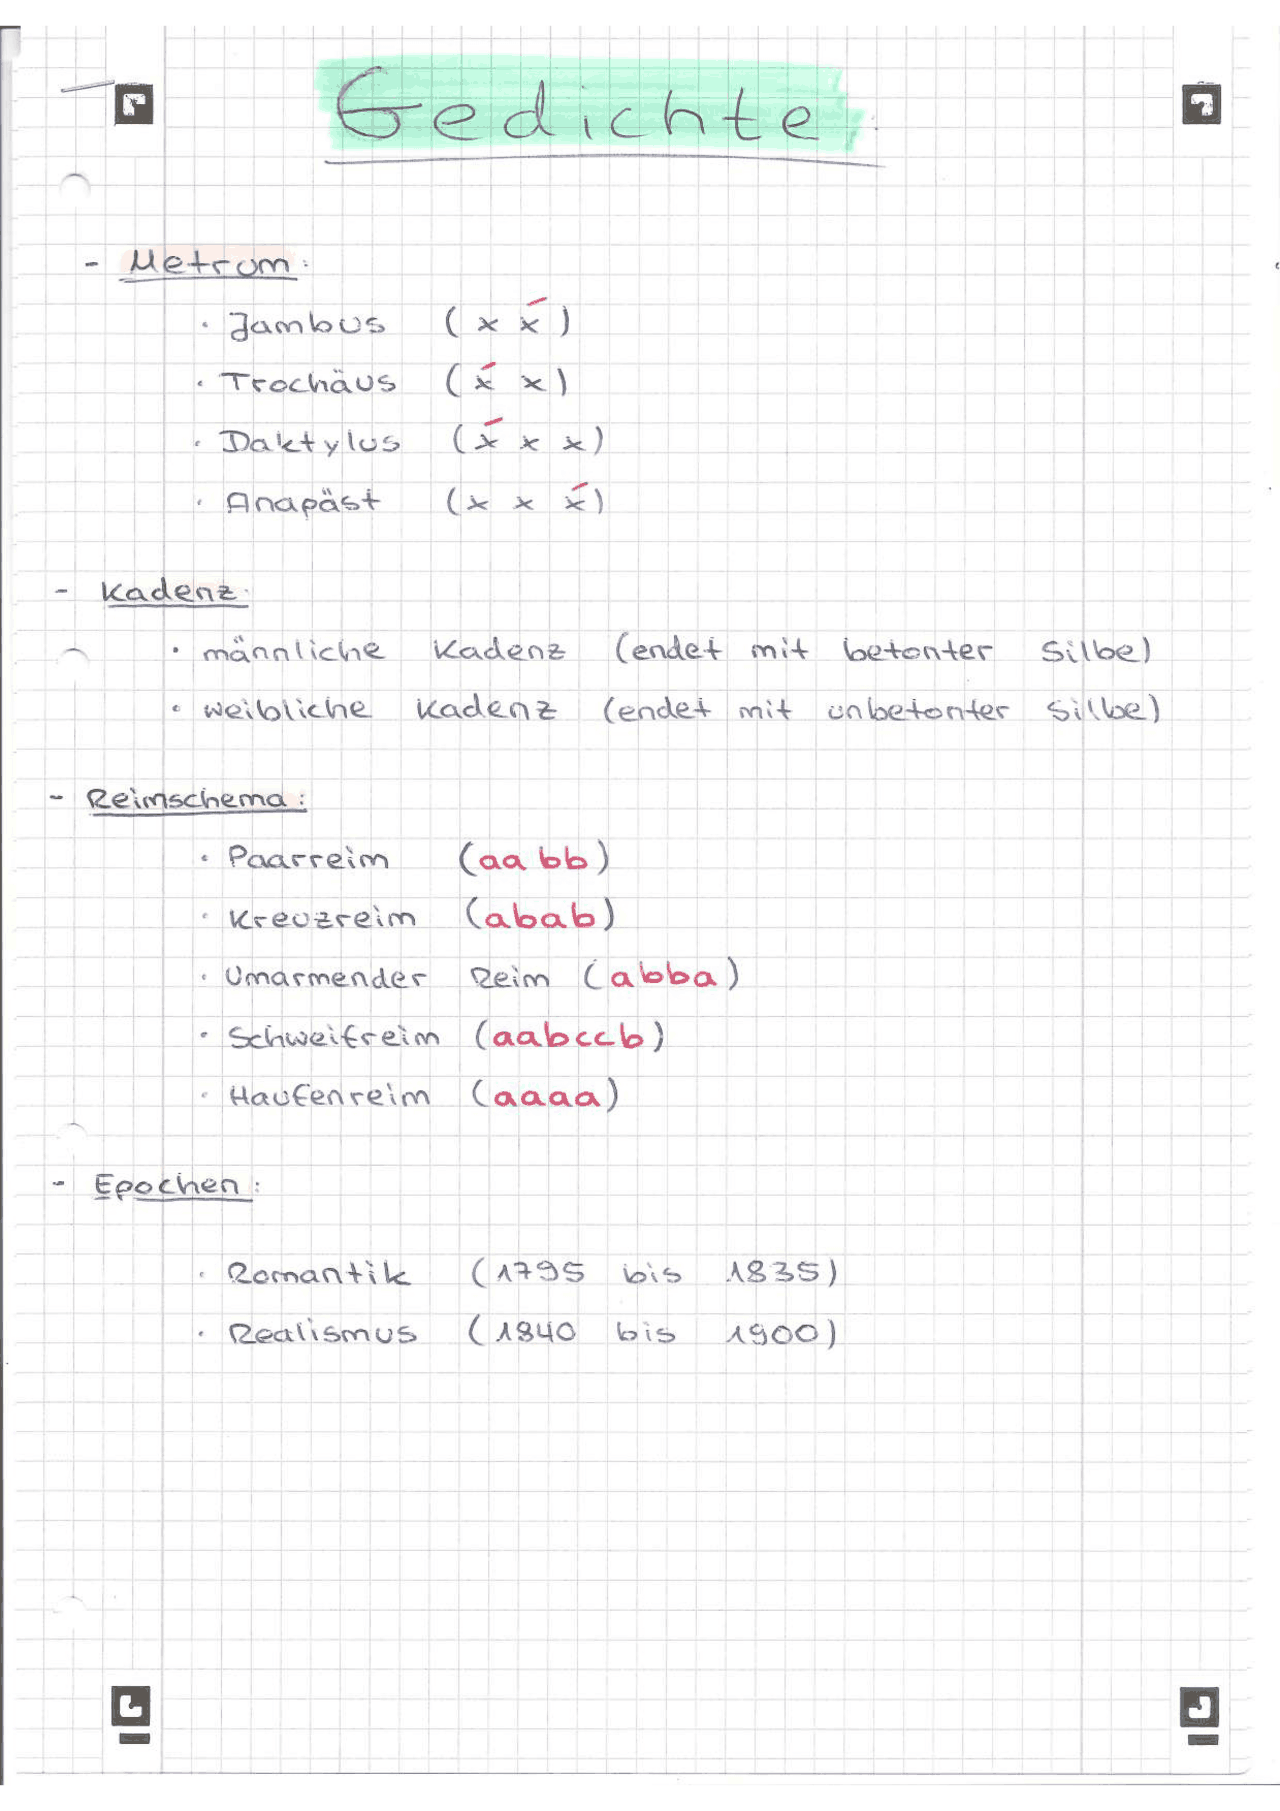 Gedichte
- Metrum:
· Jambus (x x́)
· Trochäus (x́ x)
· Daktylus (x́ x x)
· Anapäst (x x x́)
- Kadenz:
· männliche Kadenz (endet mit betonter Silbe)
· weibliche Kadenz (endet mit unbetonter Silbe)
- Reimschema:
· Paarreim (aabb)
· Kreuzreim (abab)
· Umarmender Reim (abba)
· Schweifreim (aabccb)
· Haufenreim (aaaa)
- Epochen:
· Romantik (1795 bis 1835)
· Realismus (1840 bis 1900)